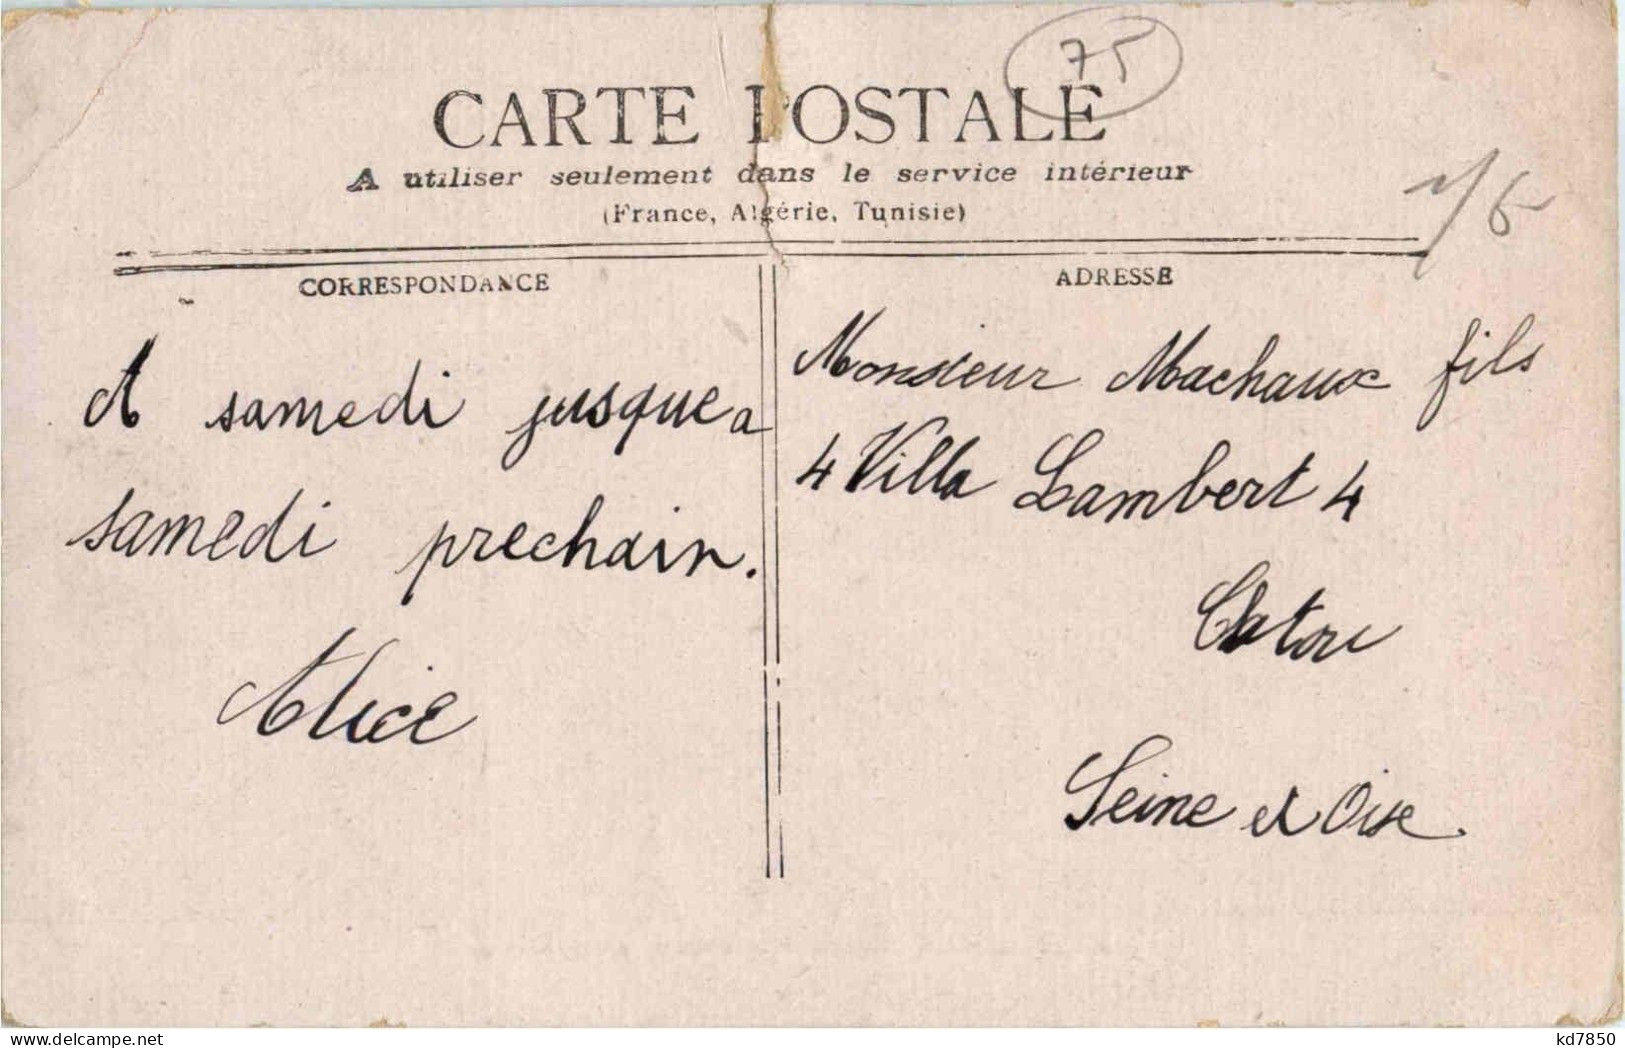 75
CARTE POSTALE
A utiliser seulement dans le service intérieur
(France, Algérie, Tunisie)
CORRESPONDANCE
A samedi jusque a
samedi prechain.
Alice
ADRESSE
Monsieur Machaux fils
4 Villa Lambert 4
Chatou
Seine et Oise.
delcampe.net
kd7850